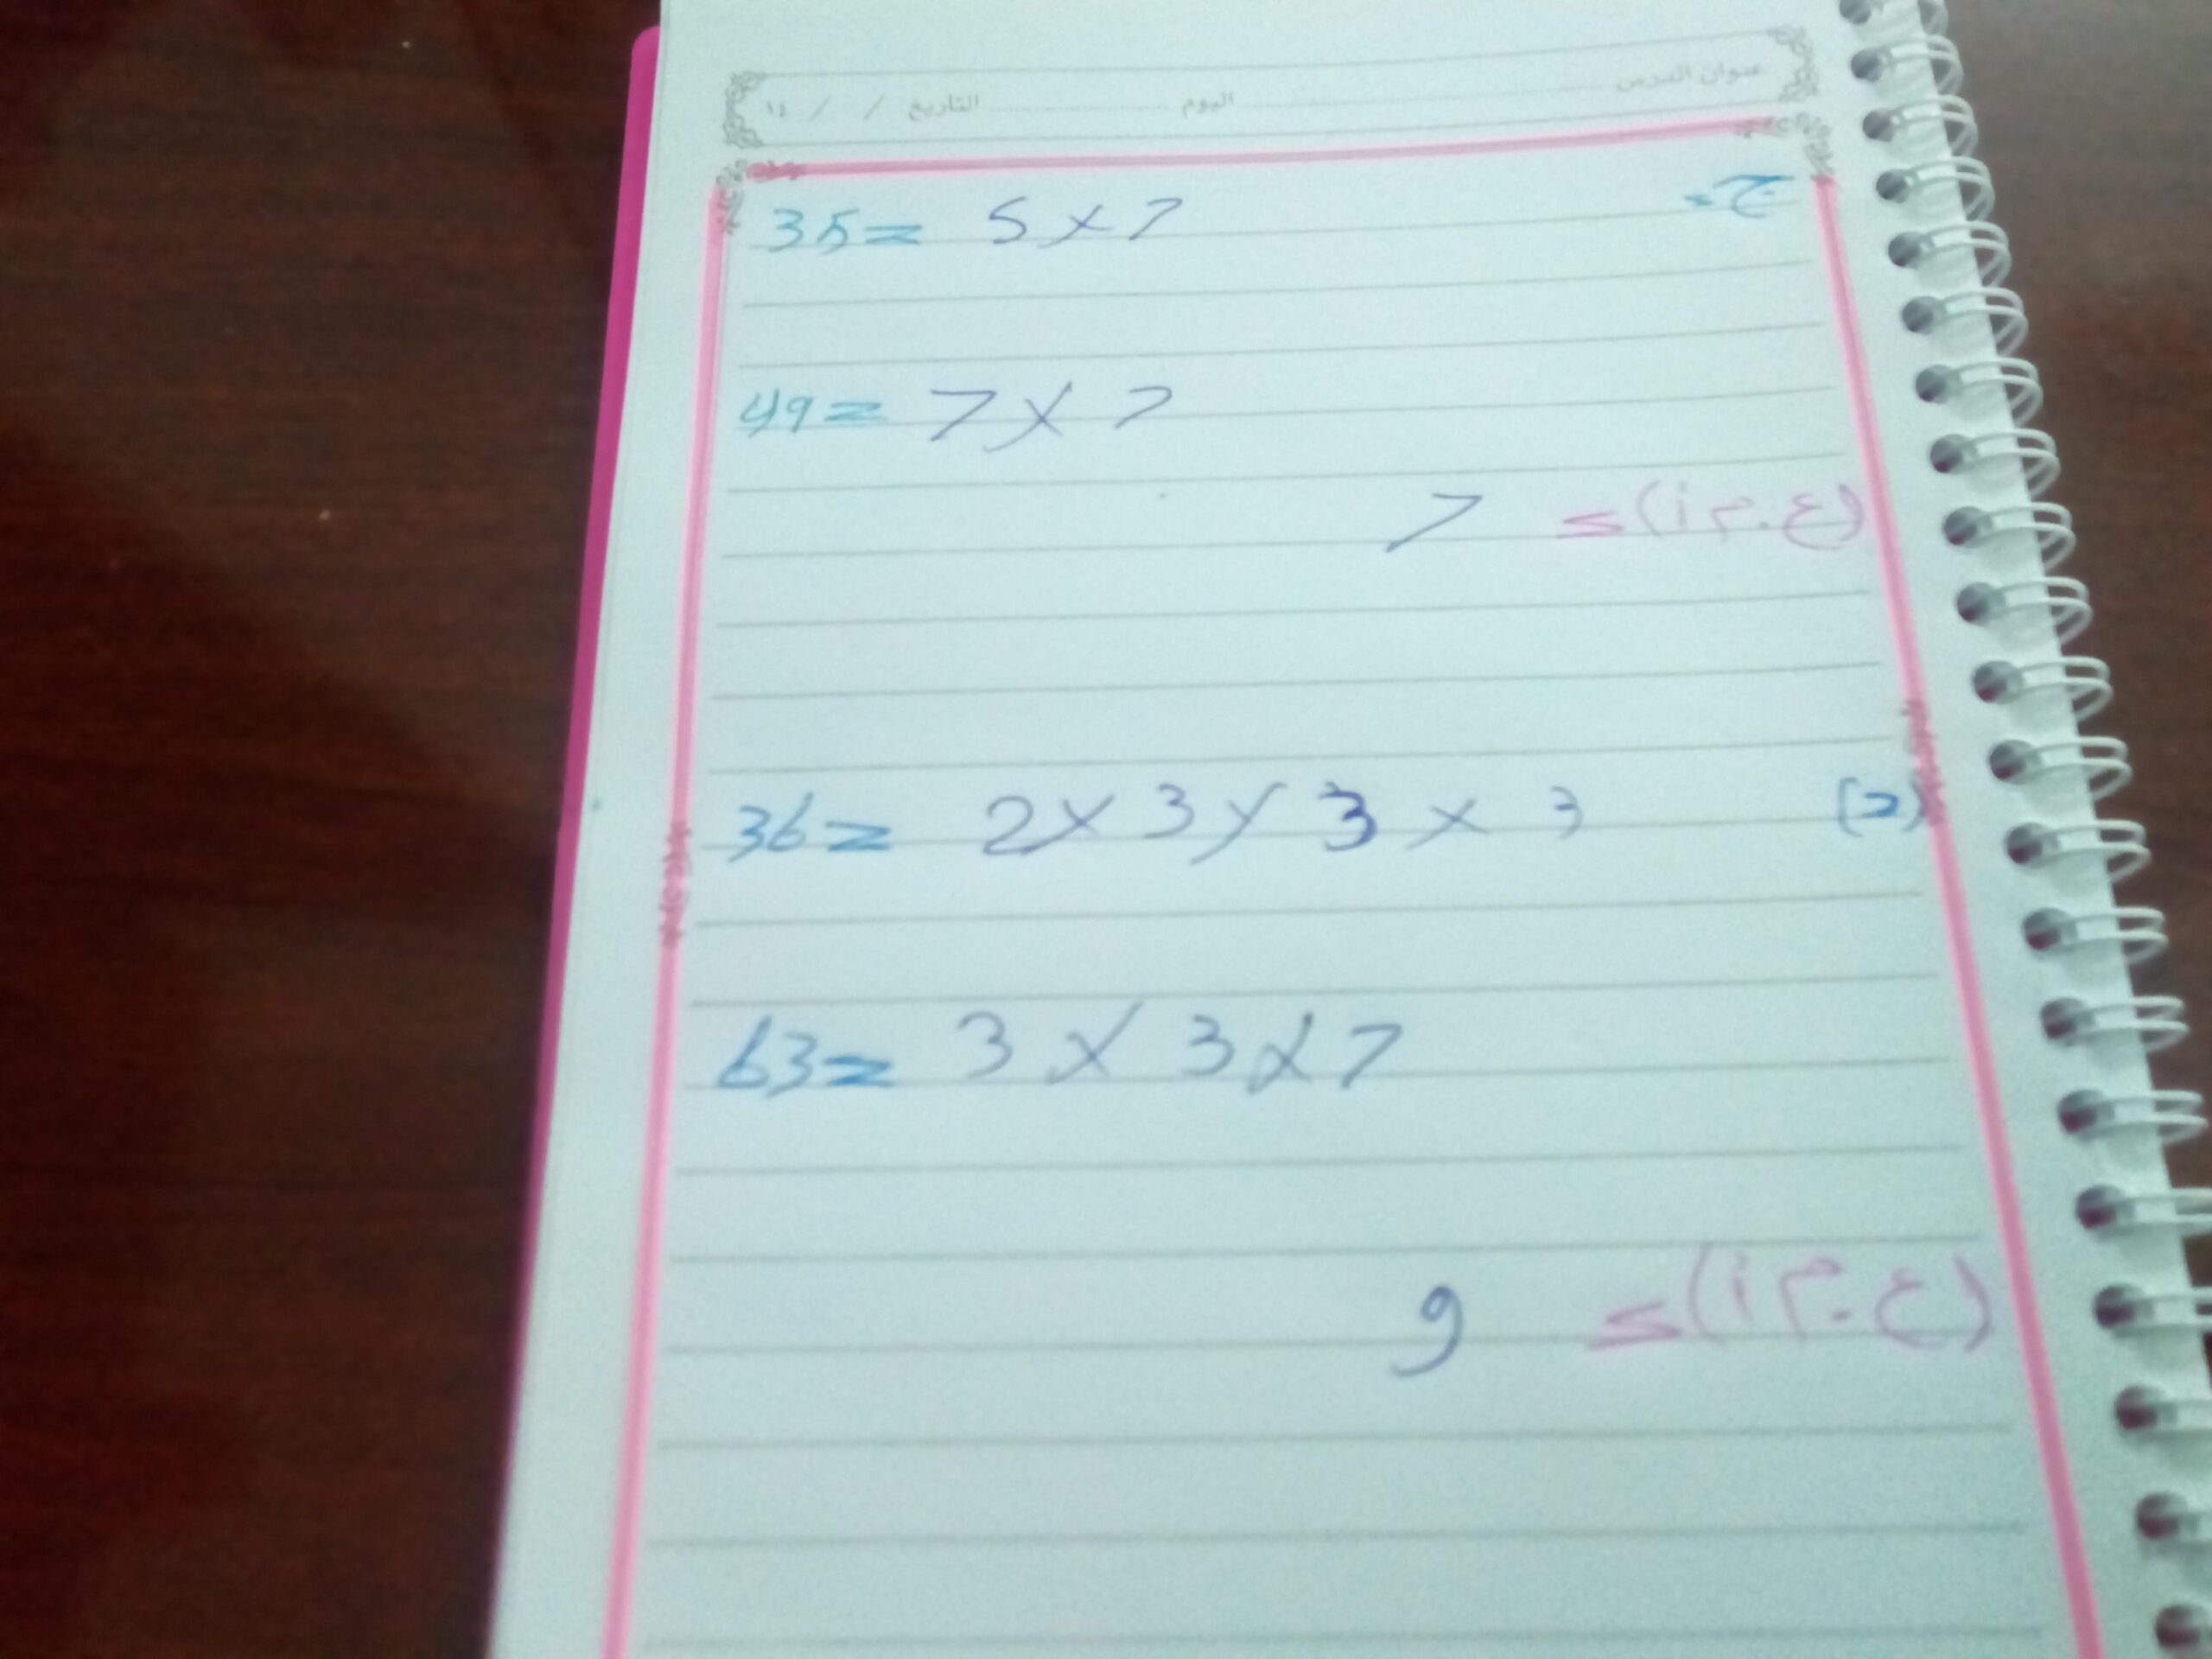 عنوان الدرس اليوم التاريخ / / ١٤
ج-
35= 5 x 7
49= 7 x 7
(ع.م.أ)= 7
(2)
36= 2 x 3 x 3 x 3
63= 3 x 3 x 7
(ع.م.أ)= 9